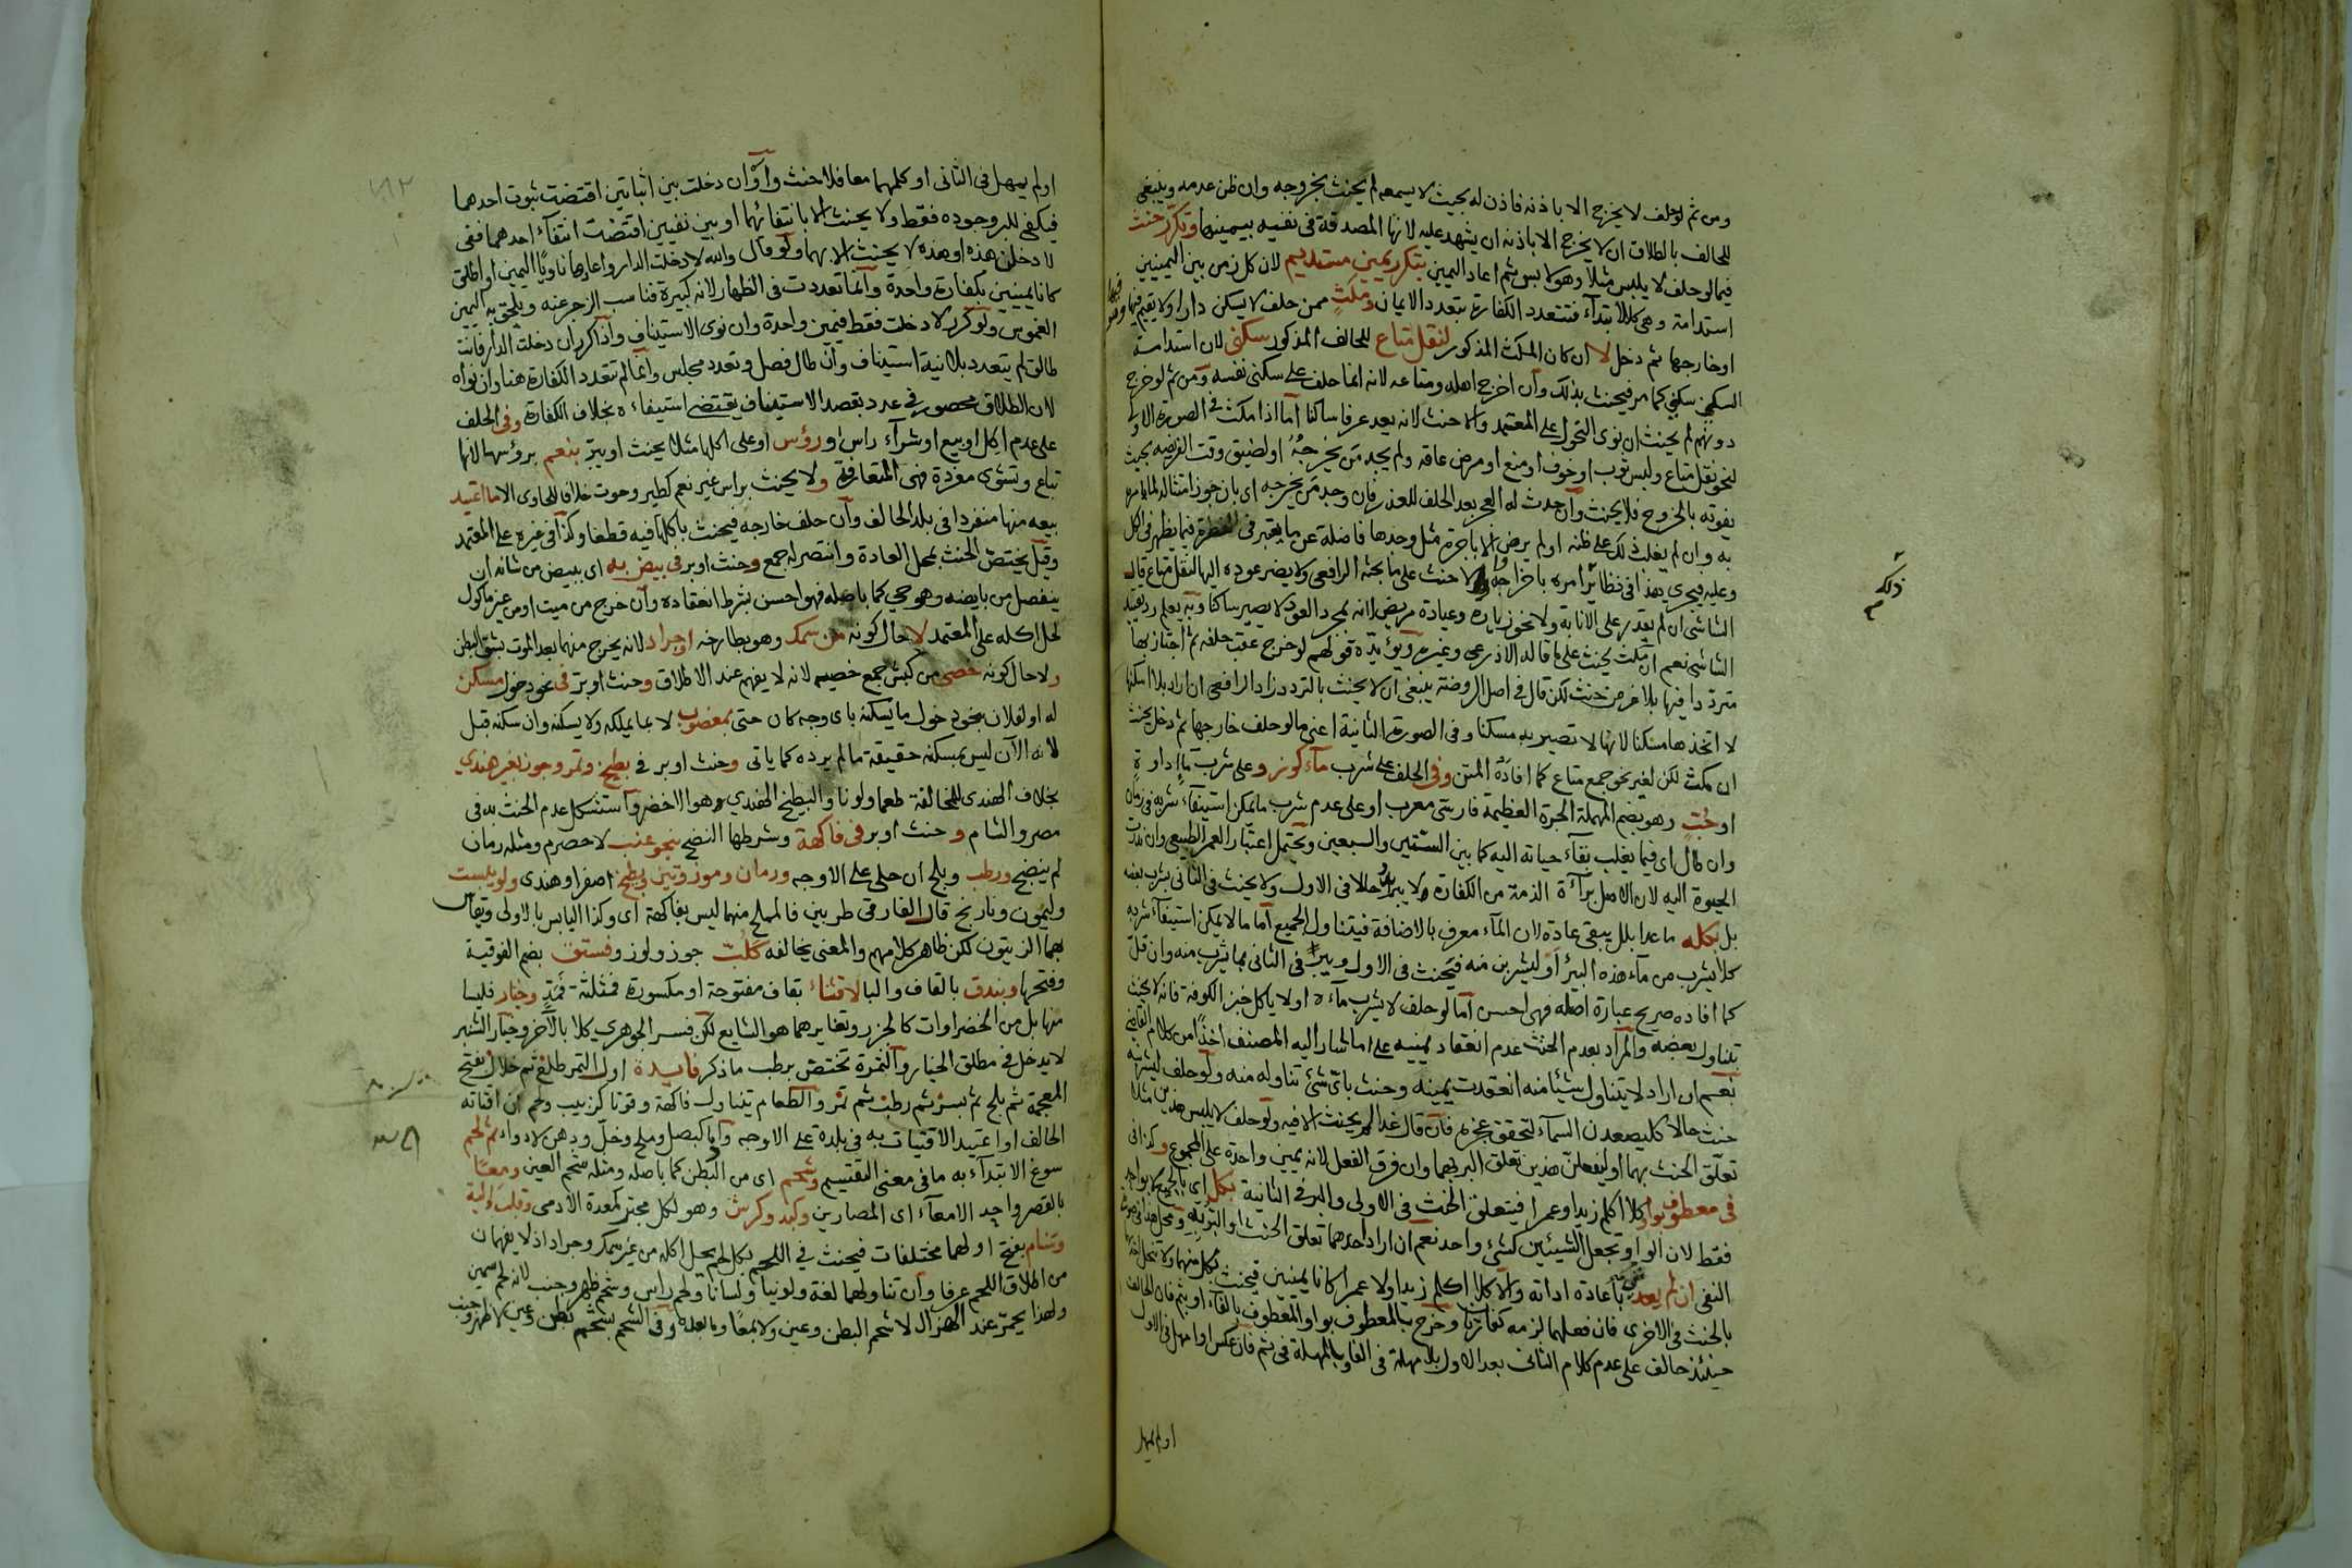 ومن ثم لو حلف لا يخرج الا باذنه فاذن له بحيث لا يسمعه لم يحنث بخروجه وان ظن عدمه وينبغي
للحالف بالطلاق ان لا يخرج الا باذنه ان يشهد عليه لانها المصدقة في نفيه بيمينها وتكرر حنث
فيما لو حلف لا يلبس مثلا وهو لابس ثم اعاد اليمين بتكرر يمين مستديم لان كل زمن بين اليمينين
استدامة وهي كالابتدآء فتتعدد الكفارة بتعدد الايمان ومكث ممن حلف لا يسكن دارا ولا يقيم فيها وهو فيها
او خارجها ثم دخل لا ان كان المكث المذكور لنقل متاع للحالف المذكور سكنى لان استدامة
السكنى سكنى كما مر فيحنث بذلك وان اخرج اهله ومتاعه لانه انما حلف على سكنى نفسه ومن ثم لو خرج
دونهم لم يحنث ان نوى التحول على المعتمد والا حنث لانه يعد عرفا ساكنا اما اذا مكث في الصورة الاولى
لنحو نقل متاع ولبس ثوب او خوف او منع او مرض عاقه ولم يجد من يخرجه او لضيق وقت الفريضة بحيث
يفوته بالخروج فلا يحنث وان حدث له العجز بعد الحلف للعذر فان وجد من يخرجه اى بان جوز امتثاله لما يامره
به وان لم يغلب ذلك على ظنه او لم يرض الا باجرة مثل وجدها فاضلة عن ما يعتبر في الفطرة فيما يظهر في الكل
وعليه فيجرى هذا في نظائر امره باخراجه والا حنث على ما بحثه الرافعي ولا يضر عوده اليها لنقل متاع قال
الشاشي ان لم يقدر على الانابة ولا نحو زيارة وعيادة مريض لانه بمجرد العود لا يصير ساكنا وبه يعلم رد تقييد
الشاشي نعم ان مكث يحنث على ما قاله الاذرعي وغيره ويؤيده قولهم لو خرج عقب حلفه ثم اجتاز بها
مترددا فيها بلا غرض حنث لكن قال في اصل الروضة ينبغي ان لا يحنث بالتردد زاد الرافعي ان اراد بلا اسكنها
لا اتخذها مسكنا لانها لا تصير به مسكنا وفي الصورة الثانية اعني ما لو حلف خارجها ثم دخل يحنث
ان مكث لكن لغير نحو جمع متاع كما افاده المتن وفي الحلف على شرب مآء كوز وعلى شرب مآء اداوة
او حب وهو بضم المهملة الجرة العظيمة فارسي معرب او على عدم شرب ما يمكن استيفآء شربه في زمان
وان طال اى فيما يغلب بقآء حياته اليه كما بين الستين والسبعين ويحتمل اعتبار العمر الطبيعي وان ندرت
الحيوة اليه لان الاصل برآءة الذمة من الكفارة ولا يبر حالا في الاول ولا يحنث في الثاني بشرب بعضه
بل بكله ما عدا بلل يبقى عادة لان المآء معرف بالاضافة فيتناول الجميع اما ما لا يمكن استيفآء شربه
كلا يشرب من مآء هذه البئر او ليشربن منه فيحنث في الاول ويبر في الثاني بما شرب منه وان قل
كما افاده صريح عبارة اصله فهي احسن اما لو حلف لا يشرب مآءه او لا ياكل خبز الكوفة فانه لا يحنث
بتناول بعضه والمراد بعدم الحنث عدم انعقاد يمينه على ما اشار اليه المصنف اخذا من كلام القاضي
نعم ان اراد لا يتناول شيئا منه انعقدت يمينه وحنث باى شئ تناوله منه ولو حلف ليشربه
حنث حالا كليصعدن السمآء لتحقق عجزه فان قال غدا لم يحنث الا فيه ولو حلف لا يلبس هذين مثلا
تعلق الحنث بهما او ليفعلن هذين تعلق البر بهما وان فرق الفعل لانه يمين واحدة على المجموع وكذا في
في معطوف بواو كلا اكلم زيدا وعمرا فيتعلق الحنث في الاولى والبر في الثانية بكل اى بالجميع
فقط لان الواو تجعل الشيئين كشئ واحد نعم ان اراد احدهما تعلق الحنث او البر به ومحل هذا في صورة
النفي ان لم يعد نفي باعادة اداته والا كلا اكلم زيدا ولا عمرا كانا يمينين فيحنث بكل منهما ولا تنحل احداهما
بالحنث في الاخرى فان فعلهما لزمه كفارتان وخرج بالمعطوف بواو المعطوف بالفآء او بثم فان الحالف
حينئذ حالف على عدم كلام الثاني بعد الاول بلا مهلة في الفا وبالمهلة في ثم فان عكس او امهل في الاول
او لم يمهل
ذلك
م
او لم يمهل في الثاني او كلمهما معا فلا حنث واو ان دخلت بين اثباتين اقتضت ثبوت احدهما
فيكفي للبر وجوده فقط ولا يحنث الا بانتفائهما او بين نفيين اقتضت انتفآء احدهما ففي
لا دخلن هذه او هذه لا يحنث الا بهما ولو قال والله لا دخلت الدار واعادها ناويا اليمين او اطلق
كانا يمينين بكفارة واحدة وانما تعددت في الظهار لانه كبيرة فناسب الزجر عنه ويلحق به اليمين
الغموس ولو كرر لا دخلت فقط فيمين واحدة وان نوى الاستيناف واذا كرر ان دخلت الدار فانت
طالق لم يتعدد بلا نية استيناف وان طال فصل وتعدد مجلس وانما لم تتعدد الكفارة هنا وان نواه
لان الطلاق محصور في عدد بقصد الاستيناف يقتضي استيفاءه بخلاف الكفارة وفي الحلف
على عدم اكل او بيع او شرآء راس او رؤس او على اكلها مثلا يحنث او يبر بنعم برؤسها لانها
تباع وتشوى مفردة فهي المتعارفة ولا يحنث براس غير نعم كطير وحوت خلافا للحاوى الا ما اعتيد
بيعه منها منفردا في بلد الحالف وان حلف خارجه فيحنث باكلها فيه قطعا وكذا في غيره على المعتمد
وقيل يختص الحنث بمحل العادة وانتصر له جمع وحنث او بر في بيض به اى ببيض من شانه ان
ينفصل من بايضه وهو حي كما باصله فهو احسن بشرط انعقاده وان خرج من ميت او من غير ماكول
لحل اكله على المعتمد لا حال كونه من سمك وهو بطارخه او جراد لانه يخرج منهما بعد الموت بشق البطن
ولا حال كونه خصى من كبش جمع خصيه لانه لا يفهم عند الاطلاق وحنث او بر في نحو دخول مسكن
له او لفلان بنحو دخول ما يسكنه باى وجه كان حتى بمغصوب لا بما يملكه ولا يسكنه وان سكنه قبل
لانه الآن ليس بمسكنه حقيقة ما لم يرده كما ياتى وحنث او بر في بطيخ وتمر وجوز بغير هندي
بخلاف الهندى للمخالفة طعما ولونا والبطيخ الهندي وهو الاخضر واستشكل عدم الحنث به في
مصر والشام وحنث او بر في فاكهة وشرطها النضج بنحو عنب لا حصرم ومثله رمان
لم ينضج ورطب وبلح ان حلى على الاوجه ورمان وموز وتين وبطيخ اصفر او هندى ولو يابست
وليمون ونارنج قال الفارقي طريين فالمملح منهما ليس بفاكهة اى وكذا اليابس بالاولى ويقاس
بهما الزيتون لكن ظاهر كلامهم والمعنى يخالفه كلب جوز ولوز وفستق بضم الفوقية
وفتحها وبندق بالقاف والبا لا قثاء بقاف مفتوحة او مكسورة فمثلثة فمد وخيار فليسا
منها بل من الخضراوات كالجزر وتغايرهما هو الشايع لكن فسر الجوهري كلا بالآخر وخيار الشنبر
لا يدخل في مطلق الخيار والثمرة تختص برطب ماذكر فايدة اول التمر طلع ثم خلال بفتح
المعجمة ثم بلح ثم بسر ثم رطب ثم تمر والطعام يتناول فاكهة وقوتا كزبيب ولحم ان اقتاته
الحالف او اعتيد الاقتيات به في بلده على الاوجه وادما كبصل وملح وخل ودهن لا دواء ثم لحم
سوغ الابتدآء به ما في معنى التقسيم وشحم اى من البطن كما باصله ومثله شحم العين ومعا
بالقصر واحد الامعآء اى المصارين وكبد وكرش وهو لكل مجتر كمعدة الآدمي وقلب والية
وسنام بفتح اولهما مختلفات فيحنث في اللحم بكل لحم يحل اكله من غير سمك وجراد اذ لا يفهمان
من اطلاق اللحم عرفا وان تناولهما لغة ولونيا ولسانا ولحم راس وشحم ظهر وجنب لانه لحم سمين
ولهذا يحمر عند الهزال لا شحم البطن وعين ولا بمعا وما بعده وفي الشحم بشحم بطن وعين لا ظهر وجنب